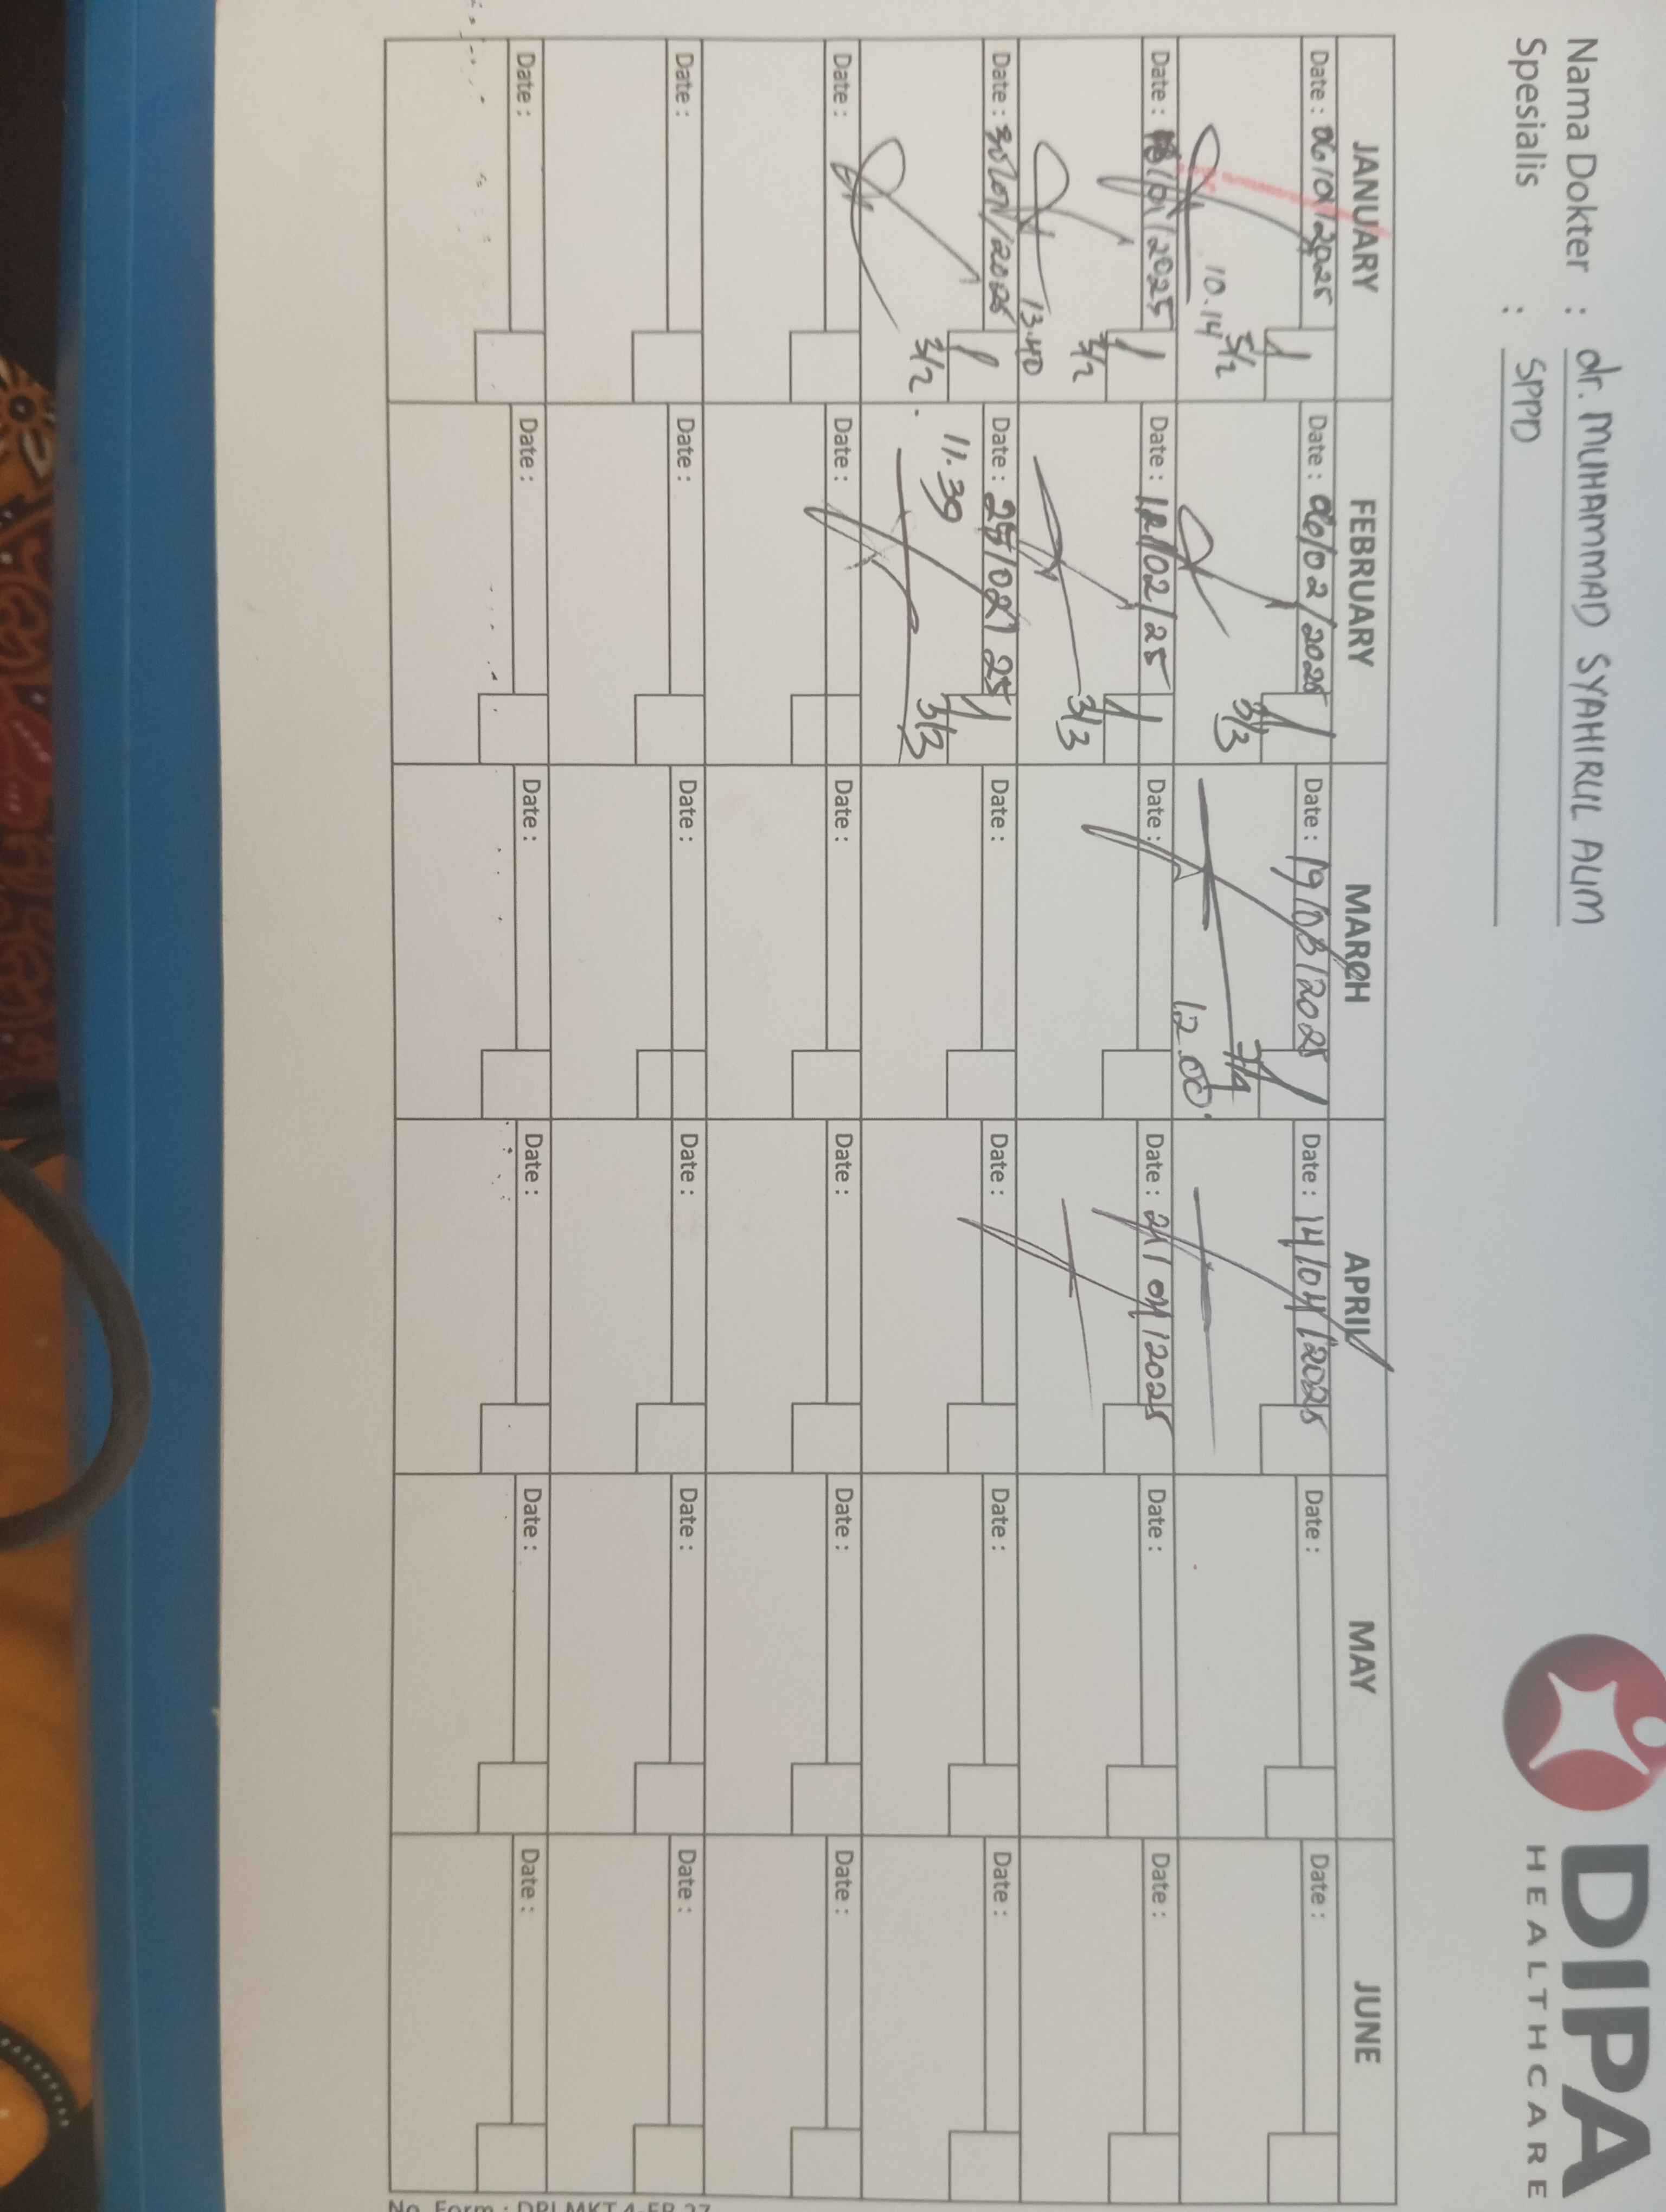 Nama Dokter : dr. MUHAMMAD SYAHIRUL ALIM
Spesialis : SPPD
DIPA
HEALTHCARE
JANUARY FEBRUARY MARCH APRIL MAY JUNE
Date : 06/01/2025 Date : 06/02/2025 Date : 19/03/2025 Date : 14/04/2025 Date : Date :
10.14 3/2 3/3 7/4 12.00
Date : /01/2025 Date : 12/02/25 Date : Date : 21/04/2025 Date : Date :
13.40 3/2 3/3
Date : 30/01/2025 Date : 25/02/25 Date : Date : Date : Date :
3/2 11.39 3/3
Date : Date : Date : Date : Date : Date :
Date : Date : Date : Date : Date : Date :
Date : Date : Date : Date : Date : Date :
No. Form :